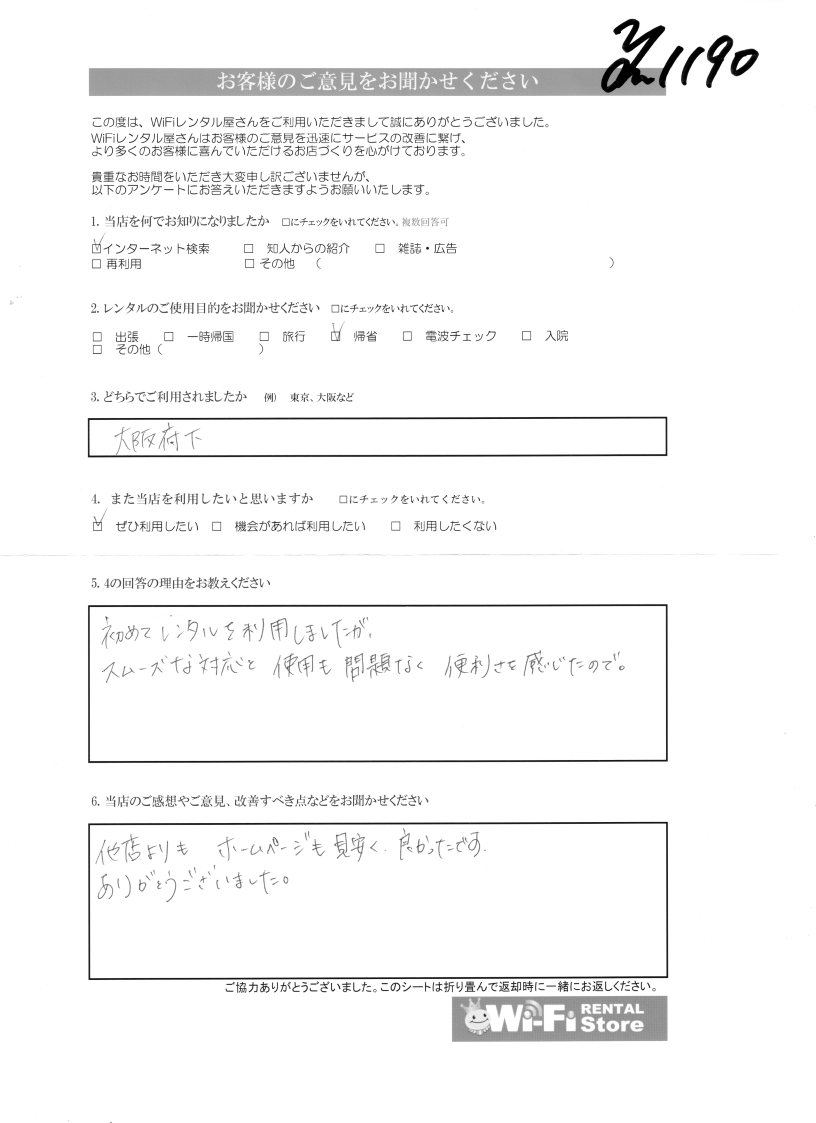 1190
お客様のご意見をお聞かせください
この度は、WiFiレンタル屋さんをご利用いただきまして誠にありがとうございました。
WiFiレンタル屋さんはお客様のご意見を迅速にサービスの改善に繋げ、
より多くのお客様に喜んでいただけるお店づくりを心がけております。
貴重なお時間をいただき大変申し訳ございませんが、
以下のアンケートにお答えいただきますようお願いいたします。
1. 当店を何でお知りになりましたか □にチェックをいれてください。複数回答可
☑インターネット検索 □ 知人からの紹介 □ 雑誌・広告
□ 再利用 □ その他 ( )
2. レンタルのご使用目的をお聞かせください □にチェックをいれてください。
□ 出張 □ 一時帰国 □ 旅行 ☑ 帰省 □ 電波チェック □ 入院
□ その他 ( )
3. どちらでご利用されましたか 例) 東京、大阪など
大阪府下
4. また当店を利用したいと思いますか □にチェックをいれてください。
☑ ぜひ利用したい □ 機会があれば利用したい □ 利用したくない
5. 4の回答の理由をお教えください
初めてレンタルを利用しましたが、
スムーズな対応と 使用も 問題なく 便利さを感じたので。
6. 当店のご感想やご意見、改善すべき点などをお聞かせください
他店よりも ホームページも見安く、良かったです.
ありがとうございました。
ご協力ありがとうございました。このシートは折り畳んで返却時に一緒にお返しください。
Wi-Fi RENTAL Store